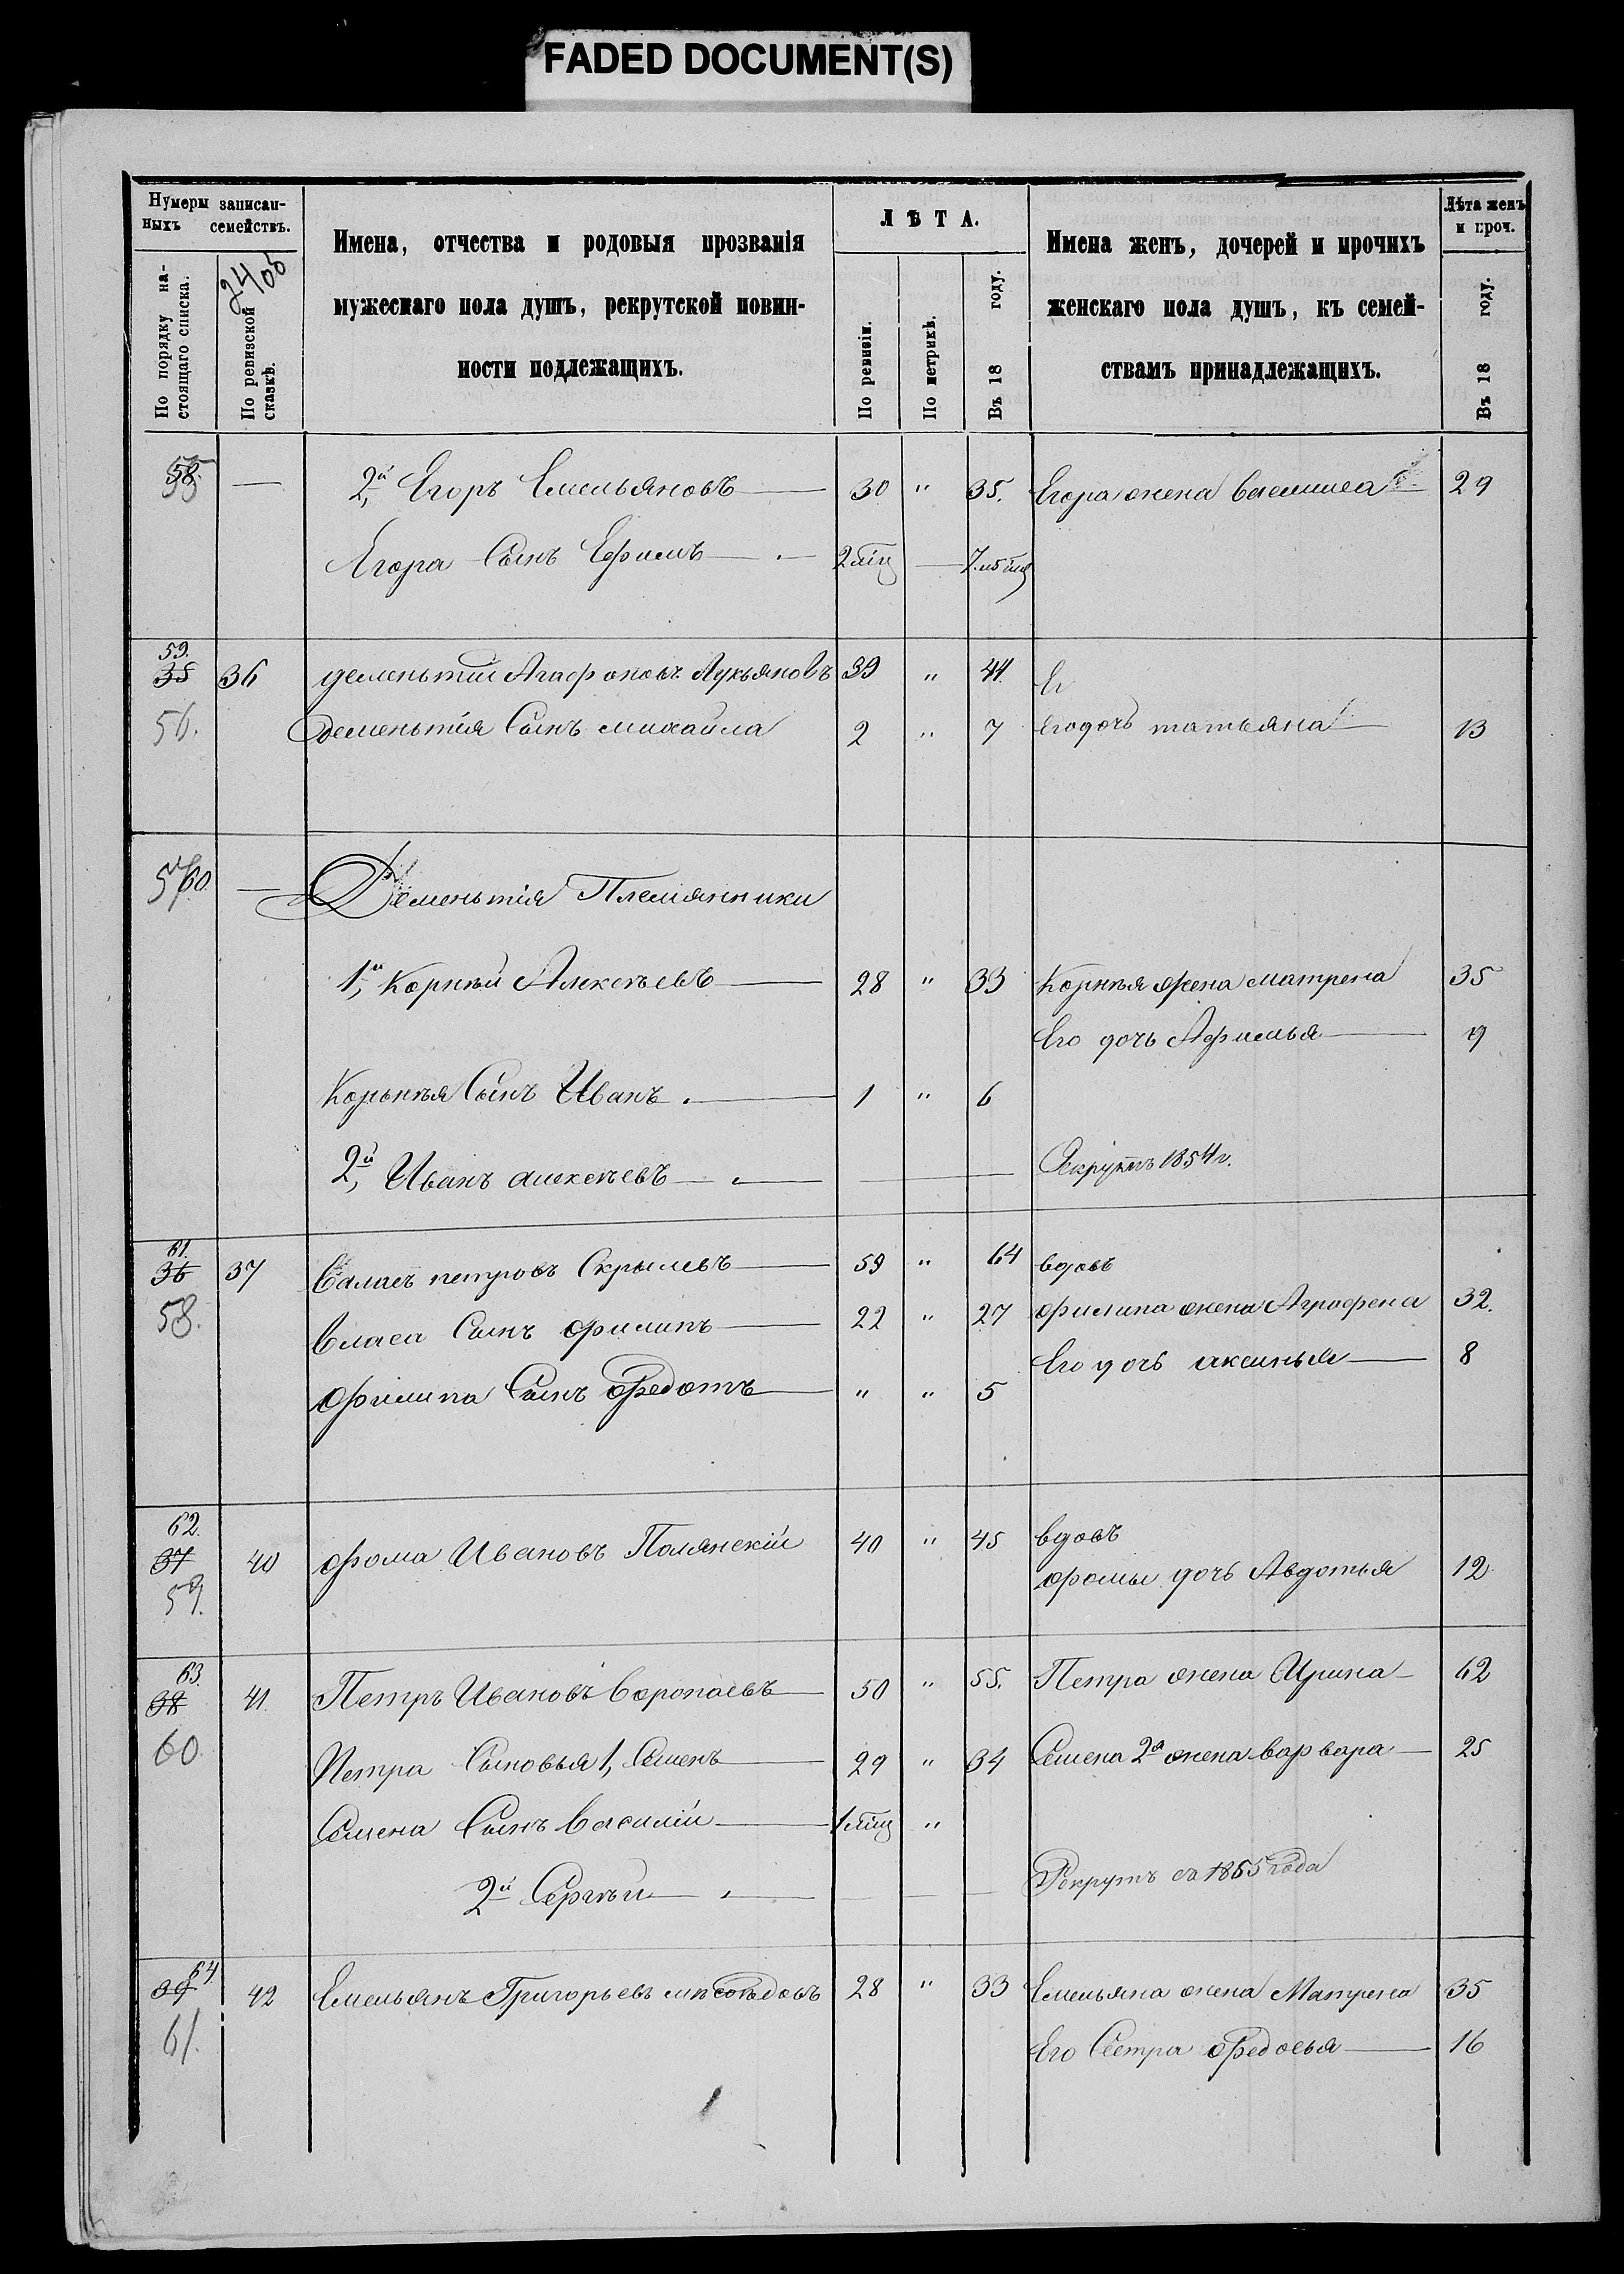 FADED DOCUMENT(S)
Нумеры записан-
ныхъ семействъ.
По порядку на-
стоящаго списка.
По ревизской
сказкѣ.
Имена, отчества и родовыя прозванія
мужескаго пола душъ, рекрутской повин-
ности подлежащихъ.
ЛѢТА.
По ревизіи.
По метрикѣ.
Въ 18 году.
Имена женъ, дочерей и прочихъ
женскаго пола душъ, къ семей-
ствамъ принадлежащихъ.
Лѣта женъ
и проч.
Въ 18 году.
58. — 2й, Егоръ Емельяновъ — 30 " 35. Егора жена Василиса — 29
Егора Сынъ Ефимъ — 2 мѣц —
59. 35 36 дементій Агафоновъ Лукьяновъ 39 " 44
56. дементія Сынъ михайла 2 " 7 его дочь татьяна — 13
57 60. — Дементія Племянники
1й, Корнѣй Алексѣевъ — 28 " 33 Корнѣя жена матрена 35
Его дочь Афимья — 9
Корьнѣя Сынъ Иванъ — 1 " 6
2й, Иванъ алексѣевъ — Рекрутъ 1854 г.
61. 36 37 Валасъ петровъ Скрылевъ — 59 " 64 вдовъ
58. Власа Сынъ филипъ — 22 " 27 филипа жена Аграфена 32.
Его дочь аксинья — 8
филипа Сынъ федотъ — " " 5
62. 37 40 фома Ивановъ Полянскій 40 " 45 вдовъ
59. фомы дочь Авдотья 12
63. 38 41. Петръ Ивановъ Воропаевъ — 50 " 55. Петра жена Ирина — 62
60. Петра Сыновья 1, Семенъ — 29 " 34 Семена 2я жена варвара — 25
Семена Сынъ Василій — 1 мѣц "
2й Сергѣй — Рекрутъ съ 1855 года
64. 39 42 Емельянъ Григорьевъ мясоѣдовъ 28 " 33 Емельяна жена Матрена 35
61. Его Сестра федосья — 16